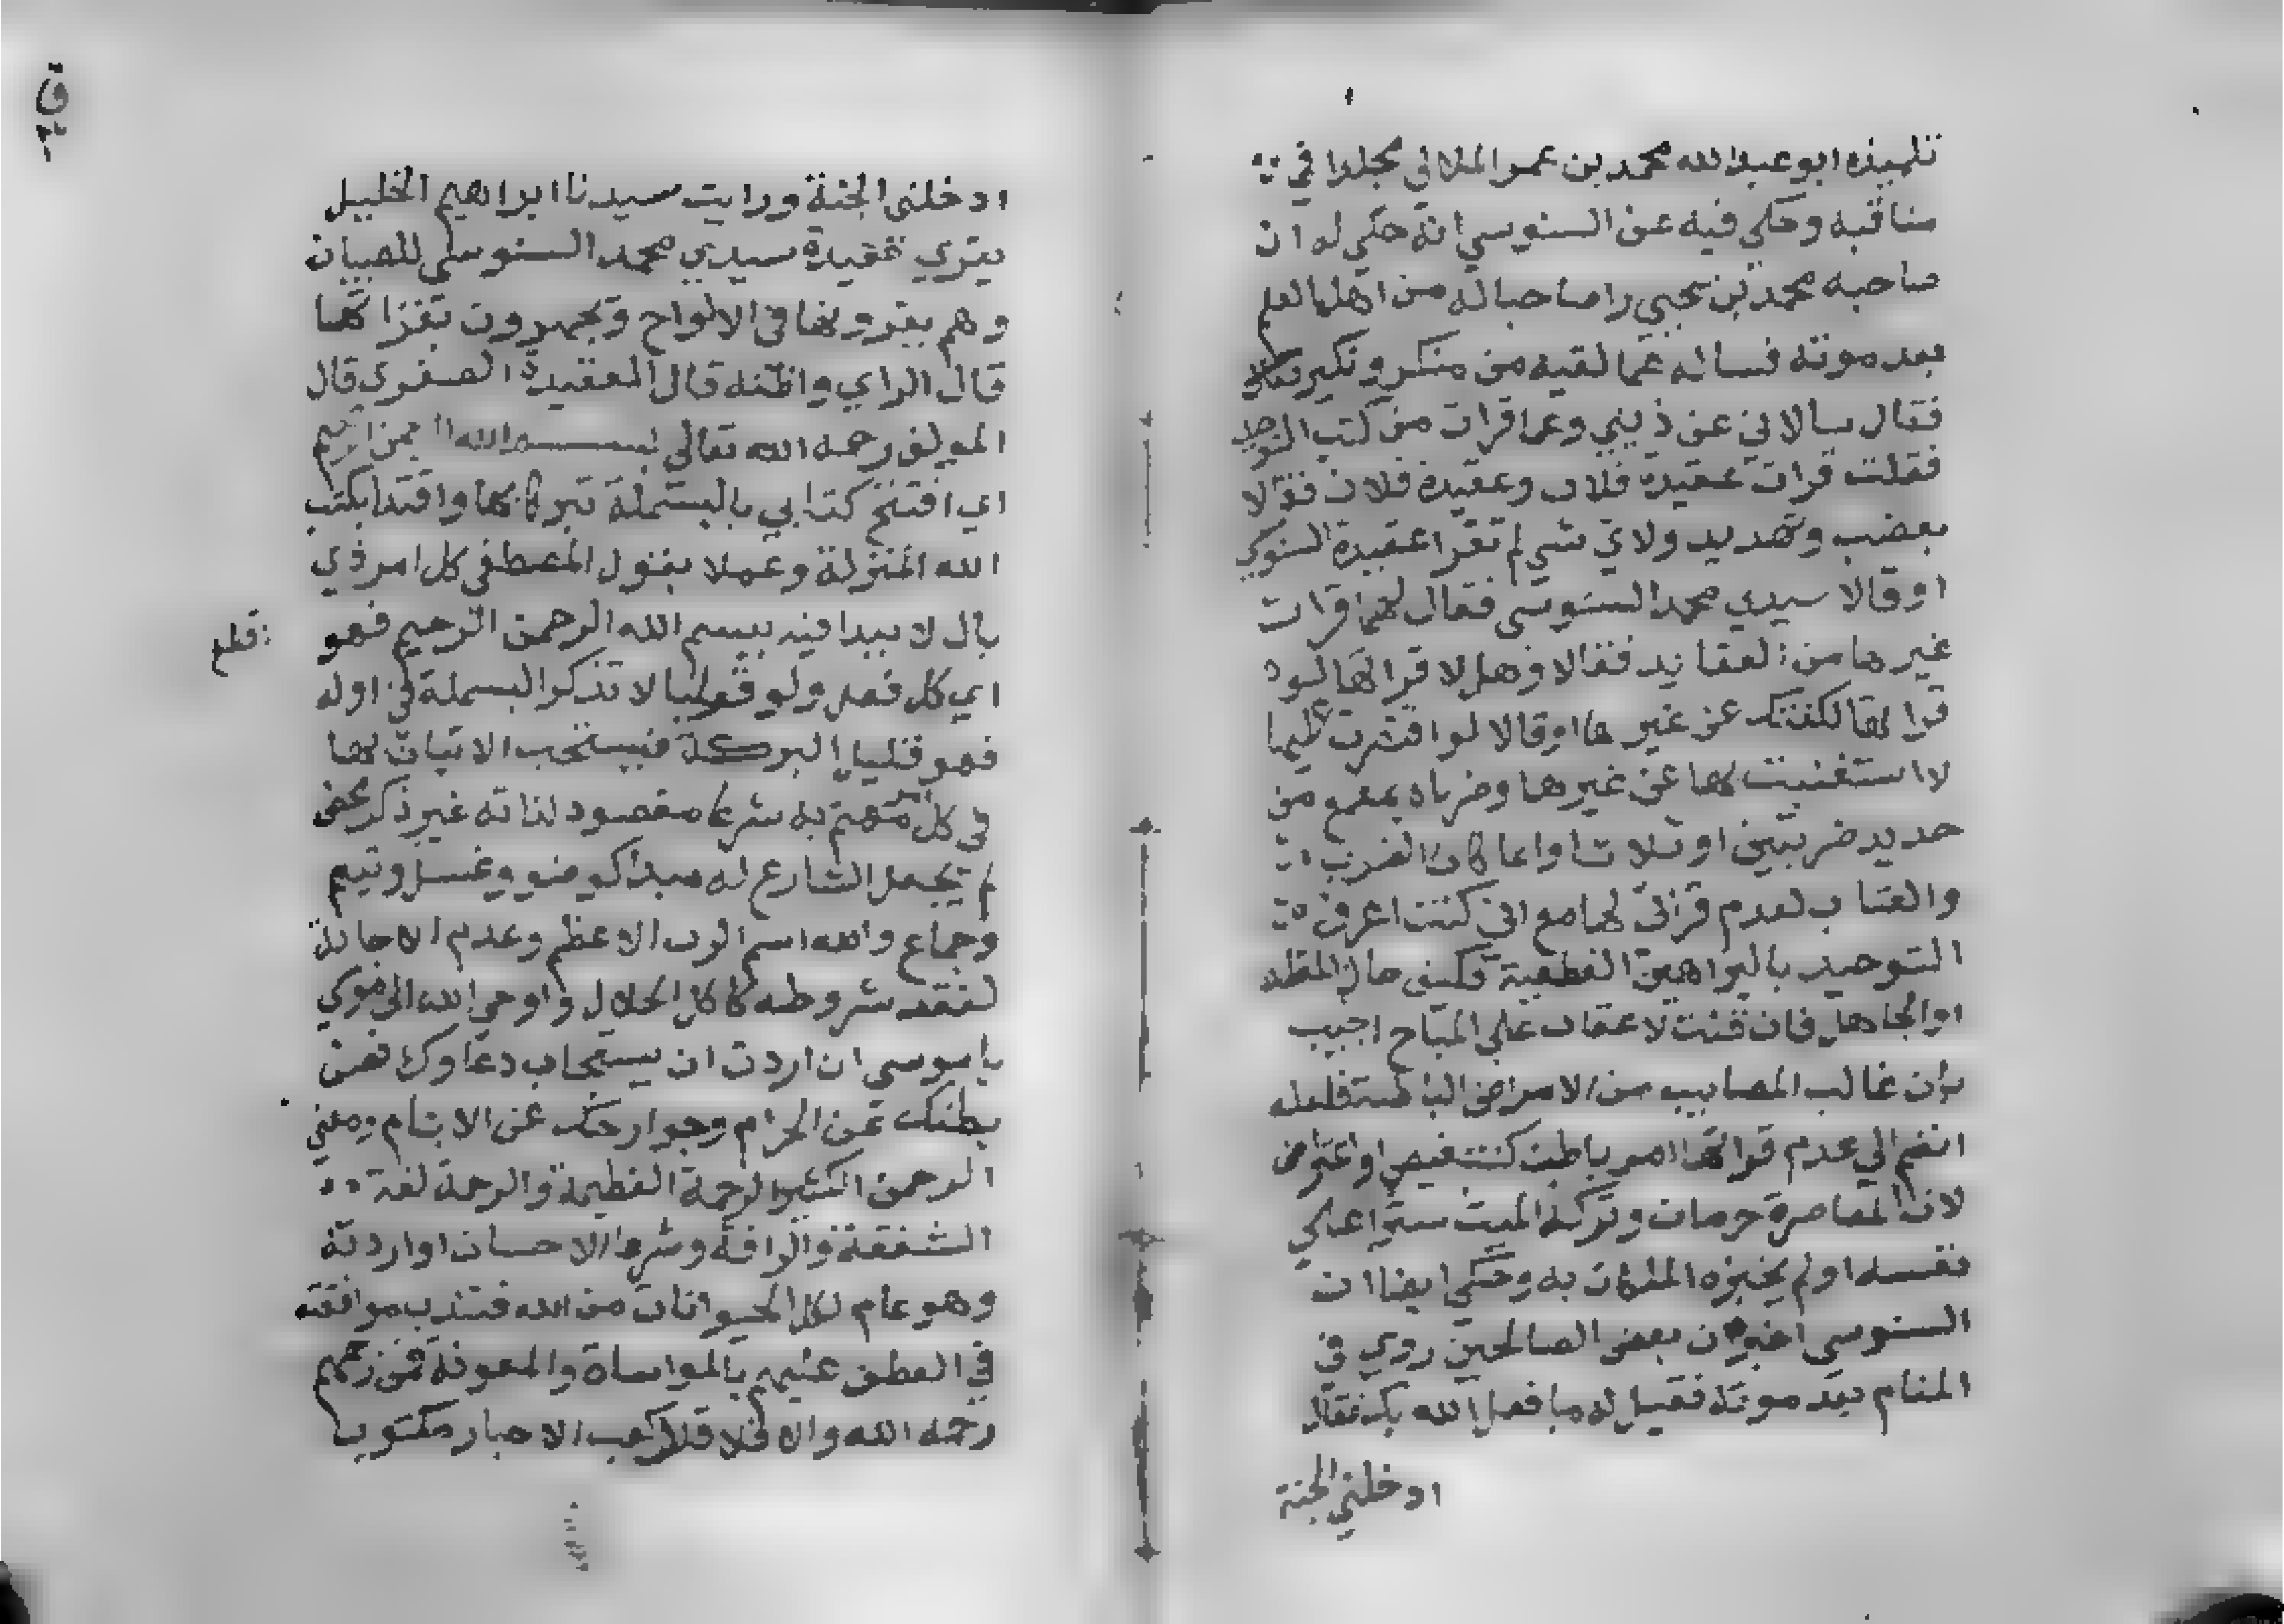 تلميذه ابو عبد الله محمد بن عمر الملالي مجلدا في
مناقبه وحكي فيه عن السنوسي انه حكي له ان
صاحبه محمد بن يحيي راصاحبا له من اهل العلم
بعد موته فساله عما لقيه من منكر ونكير
فقال سالاني عن ديني وعما قرات من كتب التوحيد
فقلت قرات عقيدة فلان وعقيدة فلان فقالا
بغضب وتهديد ولاي شي لم تقرا عقيدة السنوسي
اوقالا سيدي محمد السنوسي فقال لهما قرات
غيرها من العقايد فقالا وهل لا قراتها لو
قراتها لكفتك عن غيرها اوقالا لو اقتصرت عليها
لا استغنيت بها عن غيرها وضرباه بمقمع من
حديد ضربتين او ثلاثا وانما كان الضرب
والعتاب لعدم قراتي لها مع اني كنت اعرف
التوحيد بالبراهين القطعية فكيف حال المقلد
او الجاهل فان قلت لا عقاب علي المباح اجيب
بان غالب المصايب من الامراض الباطنة فلعله
انضم الي عدم قراتها امر باطن كتنغيص او اعتراض
لان المعاصرة حرمات وتركه الميت سترا علي
نفسه او لم يخبره الملكان به وحكي ايضا ان
السنوسي اخبر ان بعض الصالحين روي في
المنام بعد موته فقيل له ما فعل الله بك فقال
ادخلني الجنة
ادخلني الجنة ورايت سيدنا ابراهيم الخليل
يقري عقيدة سيدي محمد السنوسي للصبيان
وهم يقرونها في الالواح ويجهرون بقراتها
قال الراي واظنه قال العقيدة الصغري قال
المولف رحمه الله تعالي بسم الله الرحمن الرحيم
اي افتتح كتابي بالبسملة تبركا بها واقتدا بكتب
الله المنزلة وعملا بقول المصطفي كل امر ذي
بال لا يبدا فيه ببسم الله الرحمن الرحيم فهو
اقطع
اي كل فعل ولو قوليا لا تذكر البسملة في اوله
فهو قليل البركة فيستحب الاتيان بها
في كل مهتم به شرعا مقصود لذاته غير ذكر محض
لم يجعل الشارع له مبدا كوضو وغسل وتيمم
وجماع والله اسم الرب الاعظم وعدم الاجابة
لفقد شروطه كاكل الحلال واوحي الله الي موسي
يا موسي ان اردت ان يستجاب دعاوك فصن
بطنك عن الحرام وجوارحك عن الاثام ومعني
الرحمن الكثير الرحمة العظيمة والرحمة لغة
الشفقة والرافة وشرعا الاحسان او اردته
وهو عام لكل الحيوانات من الله فتندب موافقته
في العطف عليهم بالمواساة والمعونة فمن رحمهم
رحمه الله والا فلا قال كعب الاحبار مكتوب